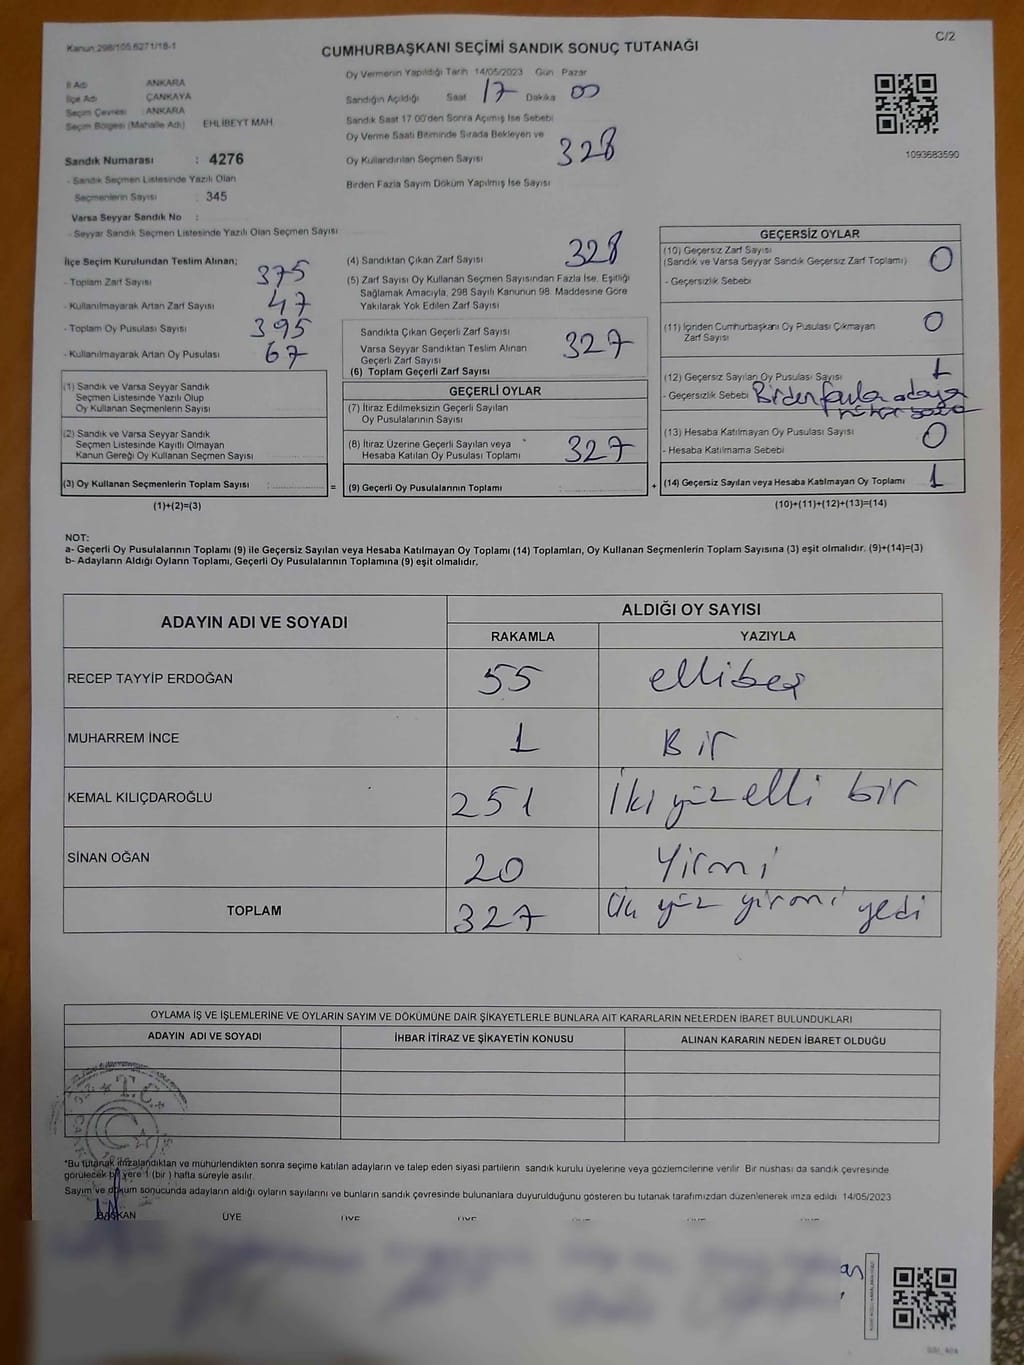 Kanun:298/105,6271/18-1
C/2
CUMHURBAŞKANI SEÇİMİ SANDIK SONUÇ TUTANAĞI
İl Adı ANKARA
İlçe Adı ÇANKAYA
Seçim Çevresi : ANKARA
Seçim Bölgesi (Mahalle Adı) EHLİBEYT MAH
Sandık Numarası : 4276
- Sandık Seçmen Listesinde Yazılı Olan
Seçmenlerin Sayısı : 345
Varsa Seyyar Sandık No :
- Seyyar Sandık Seçmen Listesinde Yazılı Olan Seçmen Sayısı
Oy Vermenin Yapıldığı Tarih 14/05/2023 Gün Pazar
Sandığın Açıldığı Saat 17 Dakika 00
Sandık Saat 17.00'den Sonra Açımış İse Sebebi
Oy Verme Saati Bitiminde Sırada Bekleyen ve
Oy Kullandırılan Seçmen Sayısı 328
Birden Fazla Sayım Döküm Yapılmış İse Sayısı
1093683590
İlçe Seçim Kurulundan Teslim Alınan;
- Toplam Zarf Sayısı 375
- Kullanılmayarak Artan Zarf Sayısı 47
- Toplam Oy Pusulası Sayısı 395
- Kullanılmayarak Artan Oy Pusulası 67
(1) Sandık ve Varsa Seyyar Sandık
Seçmen Listesinde Yazılı Olup
Oy Kullanan Seçmenlerin Sayısı
(2) Sandık ve Varsa Seyyar Sandık
Seçmen Listesinde Kayıtlı Olmayan
Kanun Gereği Oy Kullanan Seçmen Sayısı
(3) Oy Kullanan Seçmenlerin Toplam Sayısı :
(1)+(2)=(3)
(4) Sandıktan Çıkan Zarf Sayısı 328
(5) Zarf Sayısı Oy Kullanan Seçmen Sayısından Fazla İse, Eşitliği
Sağlamak Amacıyla, 298 Sayılı Kanunun 98. Maddesine Göre
Yakılarak Yok Edilen Zarf Sayısı
Sandıkta Çıkan Geçerli Zarf Sayısı
Varsa Seyyar Sandıktan Teslim Alınan
Geçerli Zarf Sayısı
(6) Toplam Geçerli Zarf Sayısı 327
GEÇERLİ OYLAR
(7) İtiraz Edilmeksizin Geçerli Sayılan
Oy Pusulalarının Sayısı
(8) İtiraz Üzerine Geçerli Sayılan veya
Hesaba Katılan Oy Pusulası Toplamı 327
= (9) Geçerli Oy Pusulalarının Toplamı :
GEÇERSİZ OYLAR
(10) Geçersiz Zarf Sayısı
(Sandık ve Varsa Seyyar Sandık Geçersiz Zarf Toplamı) 0
- Geçersizlik Sebebi
(11) İçinden Cumhurbaşkanı Oy Pusulası Çıkmayan
Zarf Sayısı 0
(12) Geçersiz Sayılan Oy Pusulası Sayısı 1
- Geçersizlik Sebebi Birden fazla adaya
(13) Hesaba Katılmayan Oy Pusulası Sayısı 0
- Hesaba Katılmama Sebebi
+ (14) Geçersiz Sayılan veya Hesaba Katılmayan Oy Toplamı 1
(10)+(11)+(12)+(13)=(14)
NOT:
a- Geçerli Oy Pusulalarının Toplamı (9) ile Geçersiz Sayılan veya Hesaba Katılmayan Oy Toplamı (14) Toplamları, Oy Kullanan Seçmenlerin Toplam Sayısına (3) eşit olmalıdır. (9)+(14)=(3)
b- Adayların Aldığı Oyların Toplamı, Geçerli Oy Pusulalarının Toplamına (9) eşit olmalıdır.
ADAYIN ADI VE SOYADI ALDIĞI OY SAYISI
RAKAMLA YAZIYLA
RECEP TAYYİP ERDOĞAN 55 ellibeş
MUHARREM İNCE 1 Bir
KEMAL KILIÇDAROĞLU 251 İki yüz elli bir
SİNAN OĞAN 20 Yirmi
TOPLAM 327 Üç yüz yirmi yedi
OYLAMA İŞ VE İŞLEMLERİNE VE OYLARIN SAYIM VE DÖKÜMÜNE DAİR ŞİKAYETLERLE BUNLARA AİT KARARLARIN NELERDEN İBARET BULUNDUKLARI
ADAYIN ADI VE SOYADI İHBAR İTİRAZ VE ŞİKAYETİN KONUSU ALINAN KARARIN NEDEN İBARET OLDUĞU
T.C.
*Bu tutanak imzalandıktan ve mühürlendikten sonra seçime katılan adayların ve talep eden siyasi partilerin sandık kurulu üyelerine veya gözlemcilerine verilir. Bir nüshası da sandık çevresinde
görülecek bir yere 1 (bir) hafta süreyle asılır.
Sayım ve döküm sonucunda adayların aldığı oyların sayılarını ve bunların sandık çevresinde bulunanlara duyurulduğunu gösteren bu tutanak tarafımızdan düzenlenerek imza edildi. 14/05/2023
BAŞKAN ÜYE ÜYE ÜYE